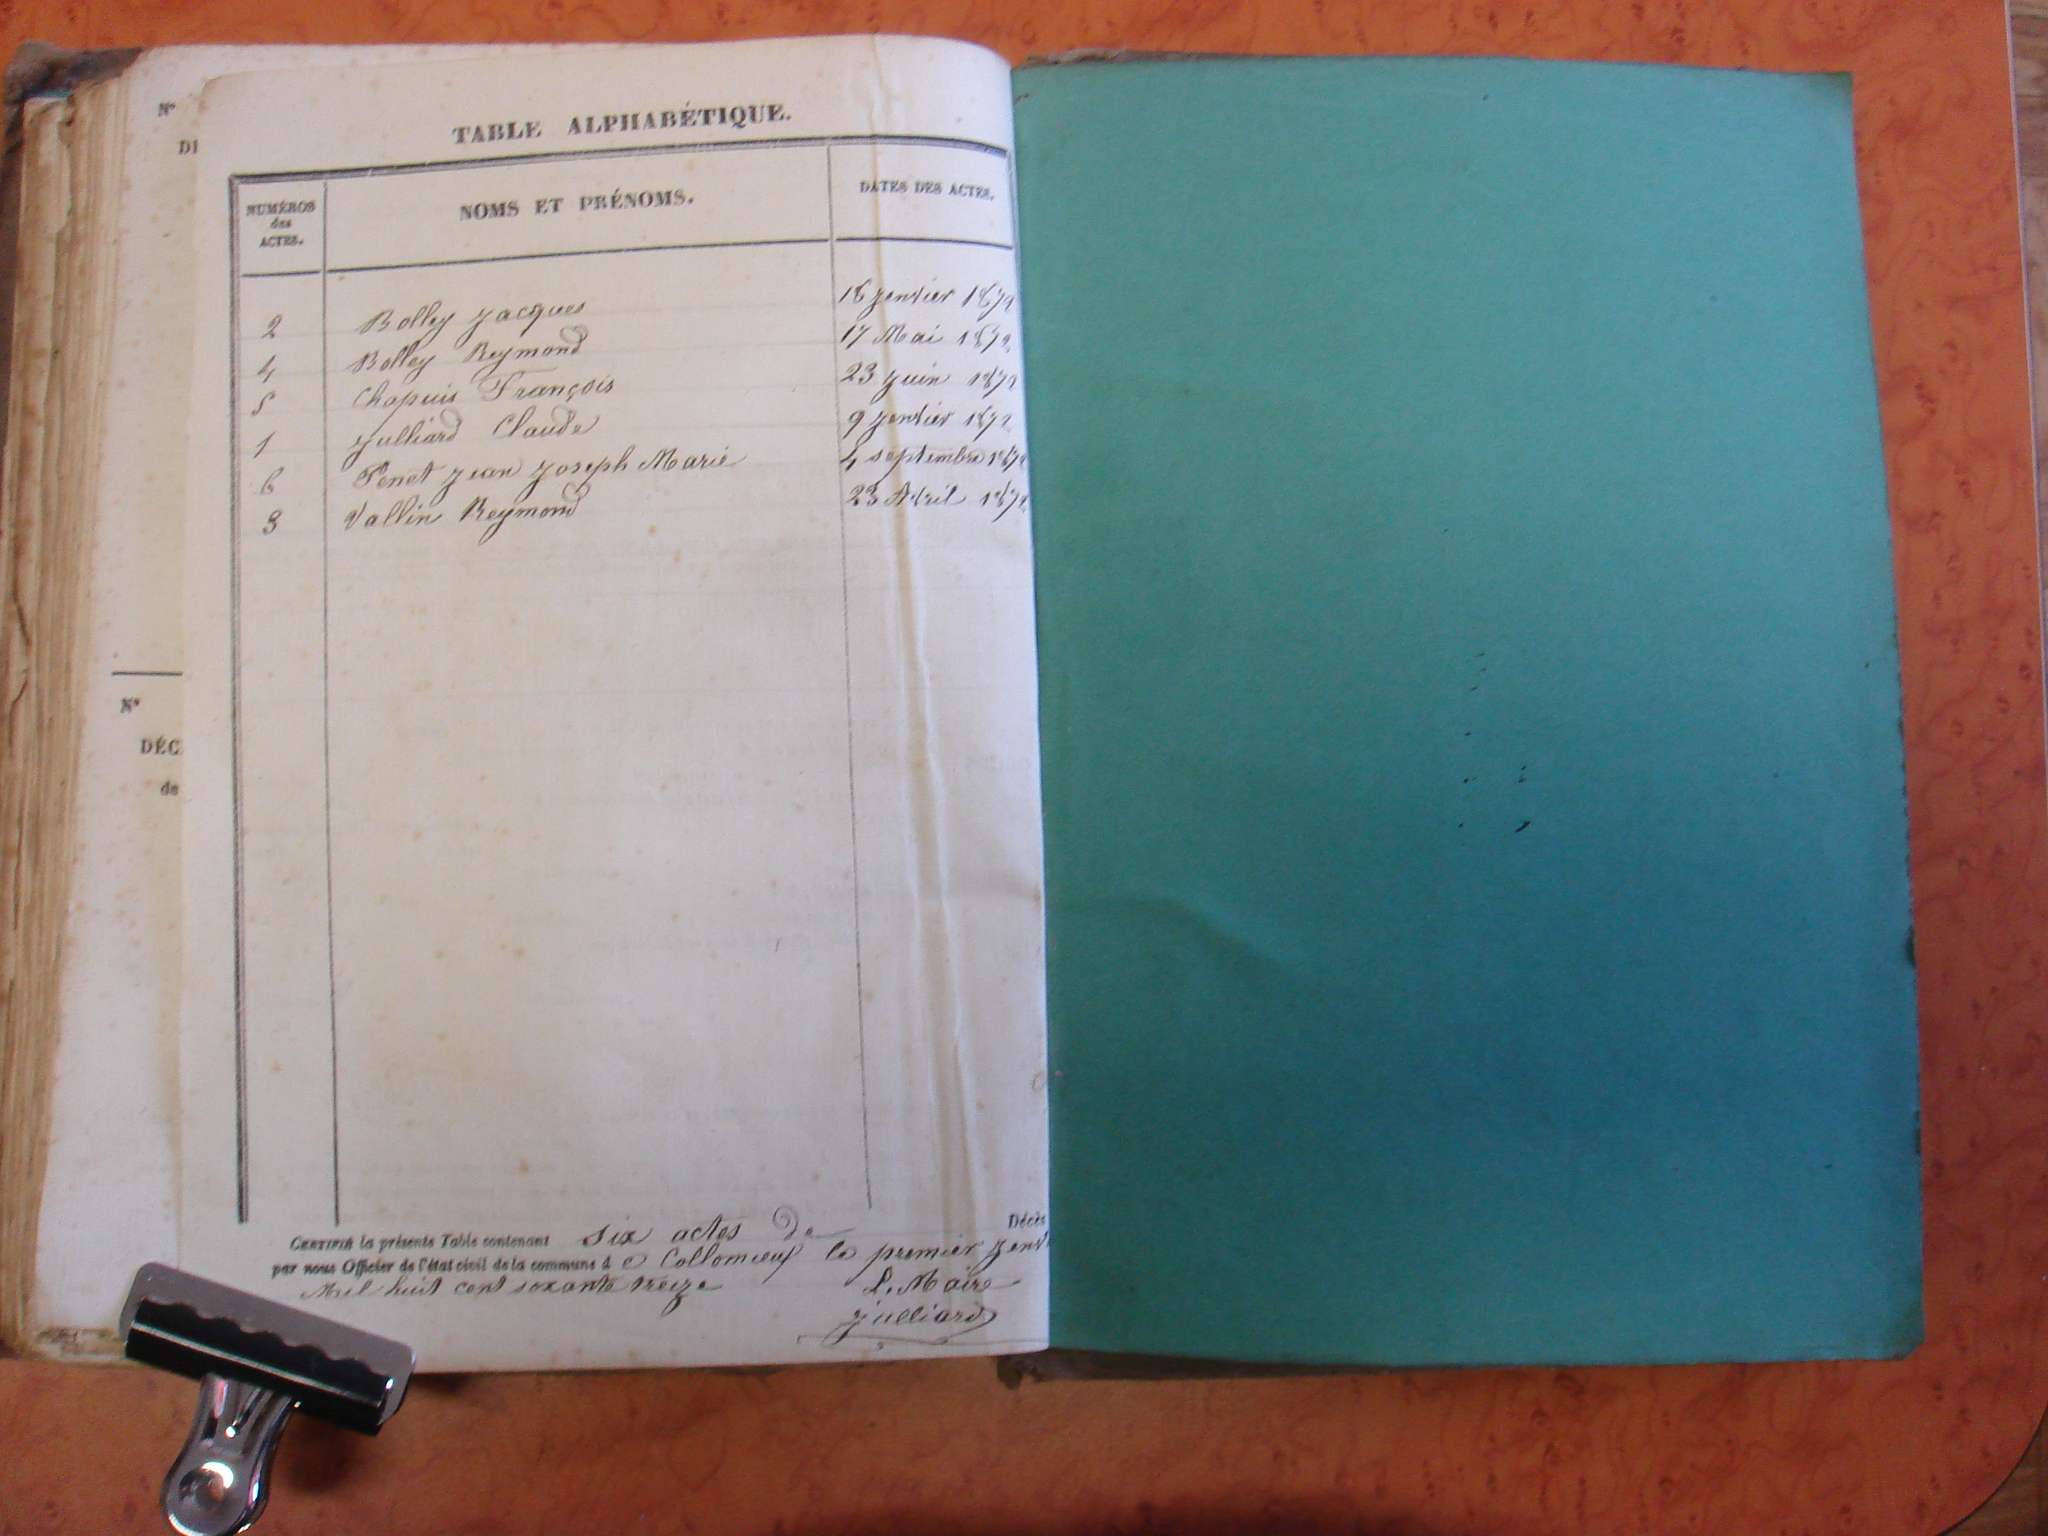 N°
DÉ
N°
DÉC
de
TABLE ALPHABÉTIQUE.
NUMÉROS
des
ACTES.
NOMS ET PRÉNOMS.
DATES DES ACTES.
2 Bolley Jacques 18 Janvier 1872
4 Bolley Reymond 17 Mai 1872
5 Chapuis François 23 Juin 1872
1 Julliard Claude 9 Janvier 1872
6 Penet Jean Joseph Marie 4 septembre 1872
3 Vallin Reymond 23 Avril 1872
CERTIFIÉ la présente Table contenant six actes De Décès
par nous Officier de l'état civil de la commune d e Collomieux le premier Janv
Mil huit cent soxante treize L. Maire
Julliard